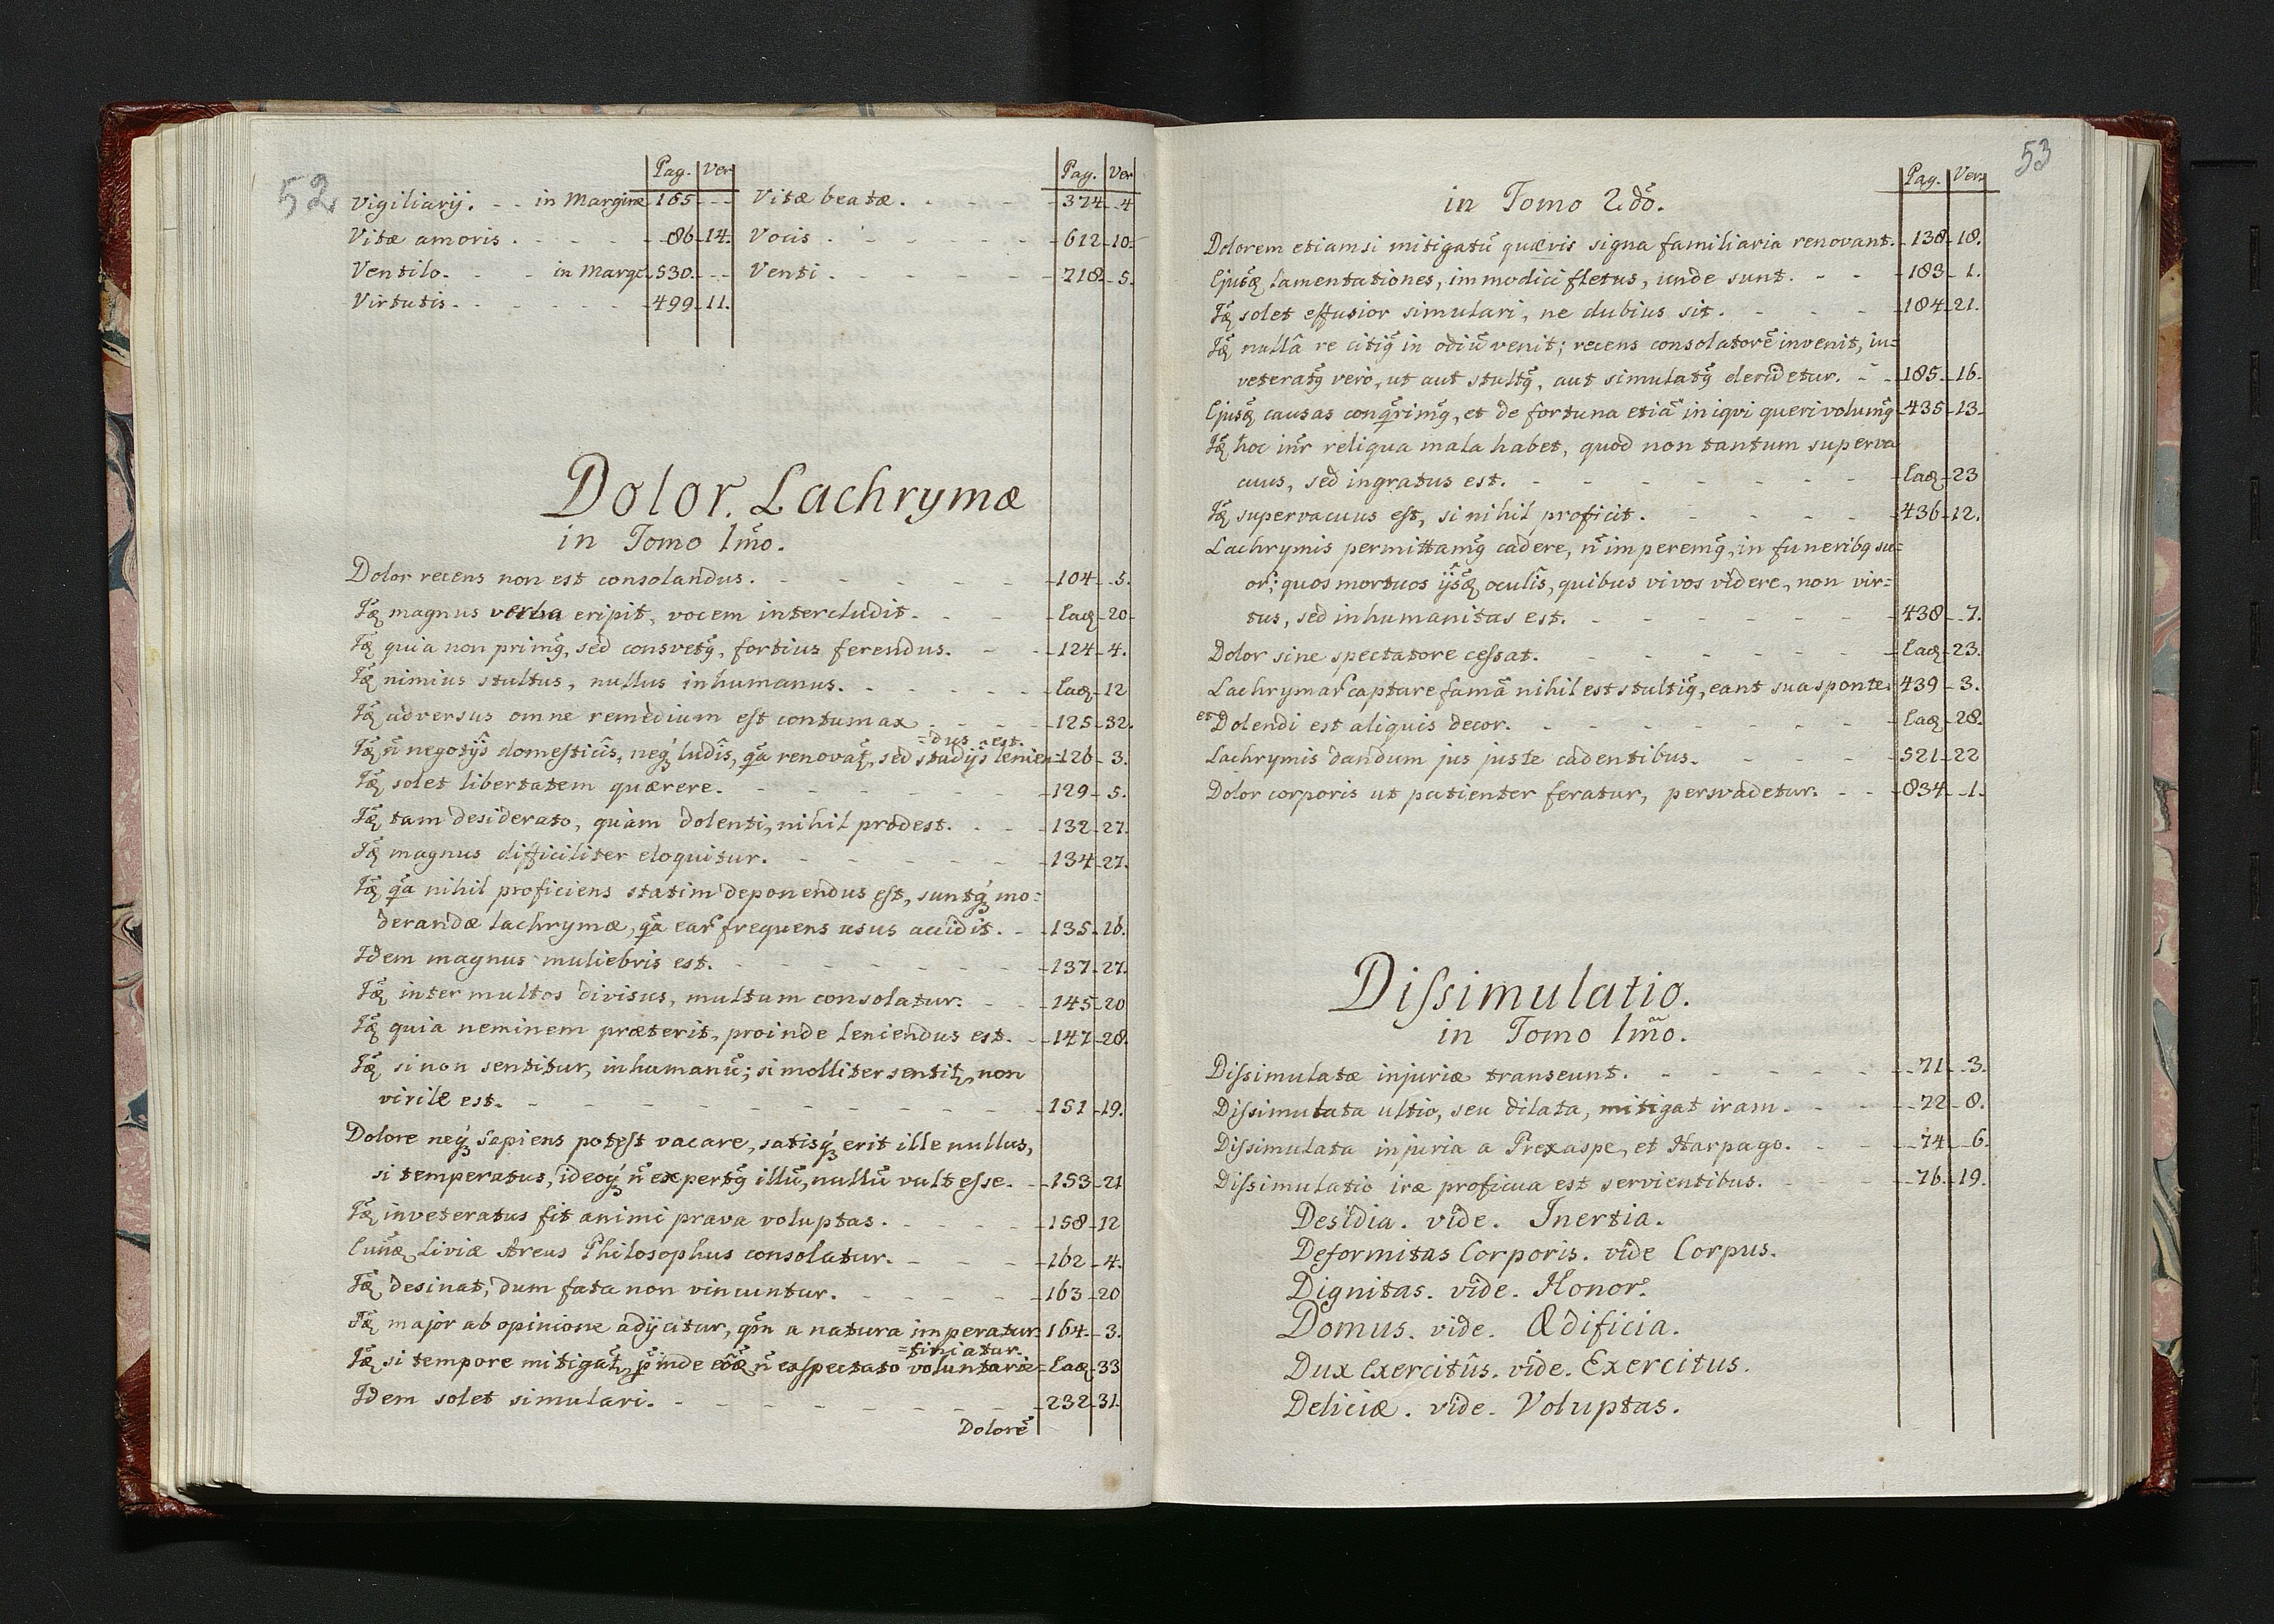 52
Pag. Ver
Pag. Ver
Vigiliarij. - - in Margine 165 - - Vitæ beatæ. - - - 374 4
Vitæ amoris. - - - 86 14. Vocis. - - - - 612 10
Ventilo. - - in Marge. 530. - - Venti. - - - - 218 5.
Virtutis. - - - - 499 11.
Dolor. Lachrymæ
in Tomo 1mõ.
Dolor recens non est consolandus. - - - - 104 5.
Idẽ magnus verba eripit, vocem intercludit. - - - Eadẽ 20
Idẽ quia non primꝰ, sed consvetꝰ, fortius ferendus. - - 124 4.
Idẽ nimius stultus, nullus inhumanus. - - - - - Eadẽ 12
Idẽ adversus omne remedium est contumax. - - - 125 32.
=dus est.
Idẽ ñ negotijs domesticîs, neqꝫ ludîs, qa renovat̃, sed studijs lenien= 126 3.
Idẽ solet libertatem quærere. - - - - - - 129 5.
Idẽ tam desiderato, quàm dolenti, nihil prodest. - - 132 27.
Idẽ magnus difficiliter eloquitur. - - - - - 134 27.
Idẽ qa nihil proficiens statim deponendus est, suntqꝫ mo=
derandæ lachrymæ, qa ear̃ frequens usus accidit. - 135 16.
Idem magnus muliebris est. - - - - - - - 137 27.
Idẽ inter multos divisus, multum consolatur. - - 145 20
Idẽ quia neminem præterit, proinde leniendus est. - 147 28.
Idẽ si non sentitur, inhumanũ; si molliter sentit̃, non
virile est. - - - - - - - - - - 151 19.
Dolore neqꝫ Sapiens potest vacare, satisqꝫ erit ille nullus,
si temperatus, ideoqꝫ ñ expertꝰ illũ, nullũ vult esse. - 153 21
Idẽ inveteratus fit animi prava voluptas. - - - - 158 12
Eundẽ Liviæ Areus Philosophus consolatur. - - - 162 4.
Idẽ desinat, dum fata non vincuntur. - - - - - 163 20
Idẽ major ab opinione adijcitur, qm̃ a natura imperatur. 164 3.
=tiniatur.
Idẽ si tempore mitigat̃, pinde eõdẽ ñ exspectato voluntarie= Eadẽ 33
Idem solet simulari. - - - - - - - - 232 31.
Dolorẽ
53
Pag. Vers
in Tomo 2dõ.
Dolorem etiamsi mitigatũ quævis signa familiaria renovant. 138 18.
Ejusdẽ lamentationes, immodici fletus, unde sunt. - - 183 1.
Idẽ solet effusior simulari, ne dubius sit. - - - - 184 21.
Idẽ nullâ re citiꝰ in odiũ venit; recens consolatorẽ invenit, in=
veteratꝰ verò, ut aut stultꝰ, aut simulatꝰ deridetur. - - 185 16.
Ejusdẽ causas conqrimꝰ, et de fortuna etiã iniqvi queri volumꝰ 435 13
Idẽ hoc inr̃ reliqua mala habet, quod non tantum superva
cuus, sed ingratus est. - - - - - - - - Eadẽ 23
Idẽ supervacuus est, si nihil proficit. - - - - - 436 12.
Lachrymis permittamꝰ cadere, ñ imperemꝰ, in funeribꝰ su=
or̃: quos mortuos ijsdẽ oculîs, quibus vivos videre, non vir=
tus, sed inhumanitas est. - - - - - - 438 7.
Dolor sine spectatore cessat. - - - - - - - Eadẽ 23.
Lachrymar̃ captare famã nihil est stultiꝰ, eant sua sponte. 439 3.
et Dolendi est aliquis decor. - - - - - - - Eadẽ 28.
Lachrymis dandum jus juste cadentibus. - - - - 521 22
Dolor corporis ut patienter feratur, persvadetur. - - 834 1.
Dissimulatio.
in Tomo 1mõ.
Dissimulatæ injuriæ transeunt. - - - - - 71 3.
Dissimulata ultio, seu dilata, mitigat iram. - - - 72 8.
Dissimulata injuria a Prexaspe, et Harpago. - - - 74 6.
Dissimulatio iræ proficua est servientibus. - - - 76 19.
Desidia. vide. Inertia.
Deformitas Corporis. vide Corpus.
Dignitas. vide. Honor.
Domus. vide. Ædificia.
Dux Exercitûs. vide. Exercitus.
Deliciæ. vide. Voluptas.